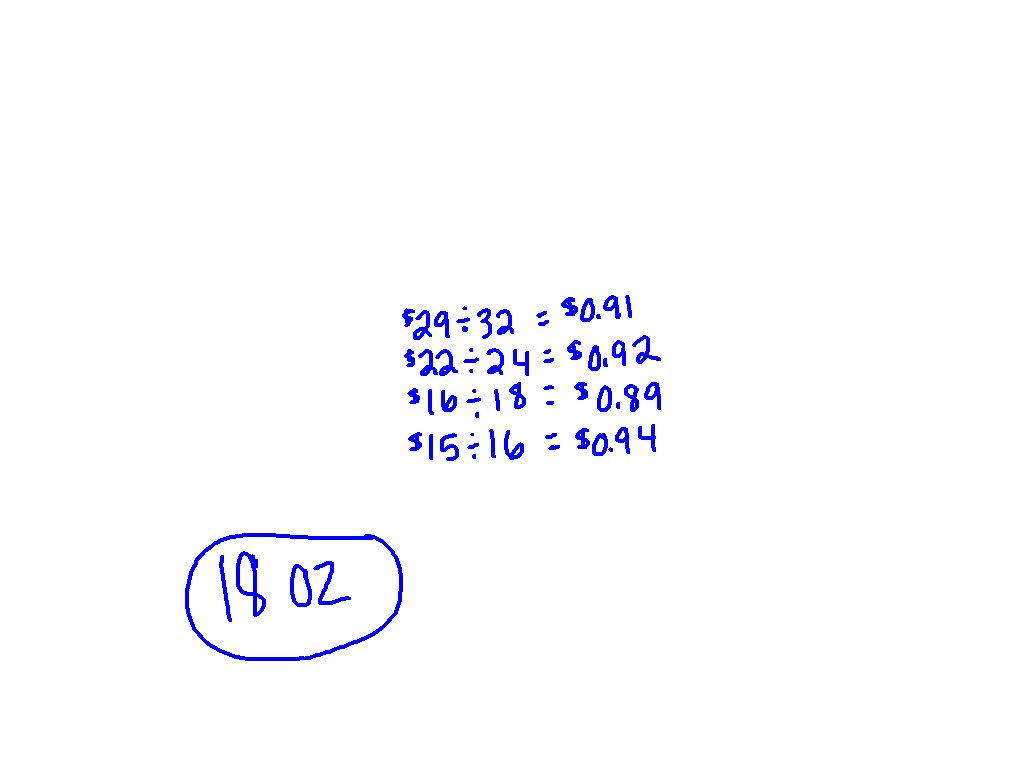 $29÷32 = $0.91
$22÷24 = $0.92
$16÷18 = $0.89
$15÷16 = $0.94
18 oz